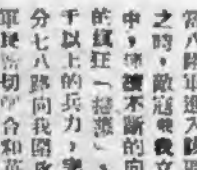 八路軍進入
之時，敵寇我文
中，不斷的向
的瘋狂「掃蕩」，
千以上的兵力，
分七八路向我圍攻
軍民密切合和英